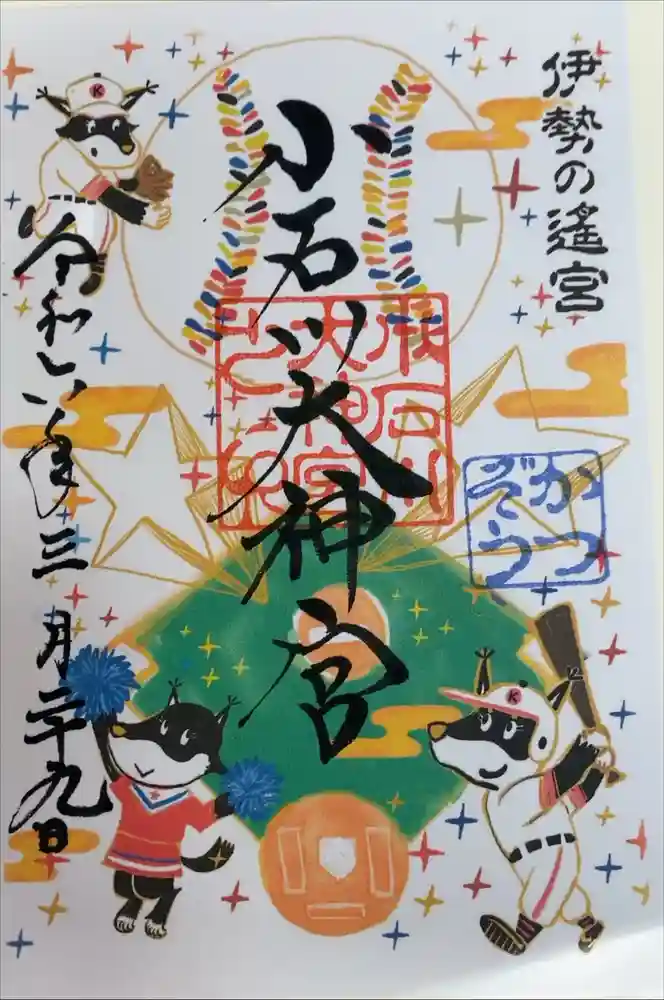 伊勢の遙宮
小石川大神宮
小石川
大神宮
かつ
ぞう
令和六年三月二十九日
K
K